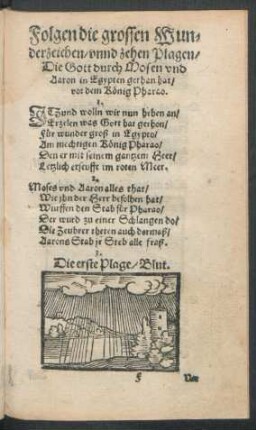 Folgen die grossen Wun-
derzeichen/vnnd zehen Plagen/
Die Gott durch Mosen vnd
Aaron in Egypten gethan hat/
vor dem König Pharao.
1.
ITzund wolln wir nun heben an/
Erzelen was Gott hat gethon/
Für wunder groß in Egypto/
Am mechtigen König Pharao/
Den er mit seinem gantzem Heer/
Letzlich erseufft im roten Meer.
2.
Moses vnd Aaron alles that/
Wie jhn der Herr befolhen hat/
Wurffen den Stab für Pharao/
Der wird zu einer Schlangen do/
Die Zeubrer theten auch dermaß/
Aarons Stab jr Steb alle fraß.
3.
Die erste Plage/Blut.
F